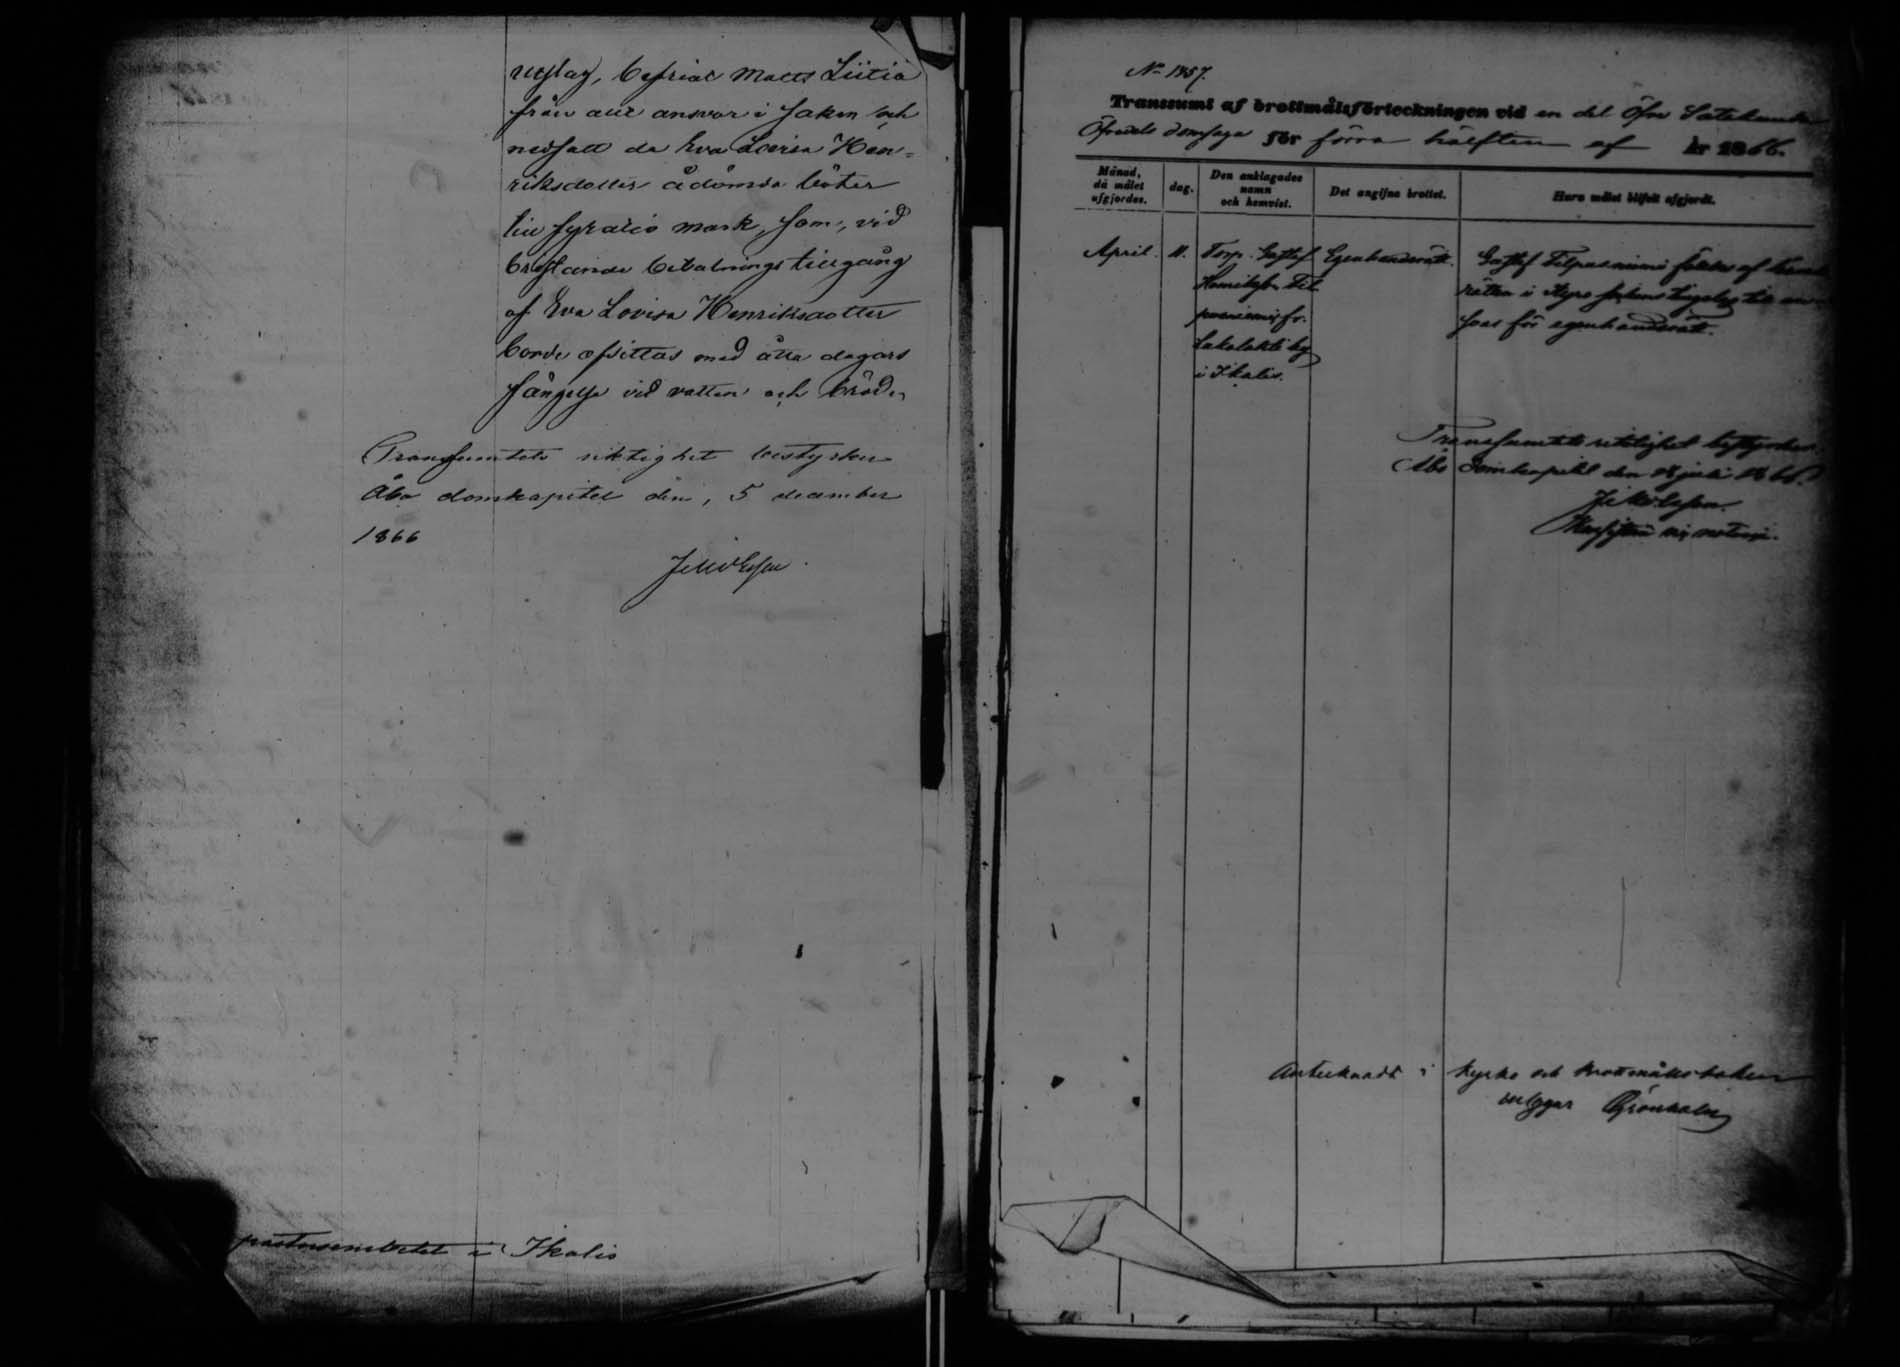 utslag, befriat Matts Liitiä
från allt ansvar i saken och
nedsatt de Eva Lovisa Hen-
riksdotter ådömda böter
till fyratio mark, som, vid
bristande betalningstillgång
af Eva Lovisa Henriksdotter
borde afsittas med åtta dagars
fängelse vid vatten och bröd.
Transsumtets riktighet bestyrker
Åbo domkapitel den, 5 december
1866
pastorsembetet i Ikalis
No 1857.
Transsumt af brottmålsförteckningen vid en del Öfre Satakunda
Öfredels domsaga för förra hälften af år 1866.
Månad, då målet afgjordes.
dag.
Den anklagades namn och hemvist.
Det angifna brottet.
Huru målet blifvit afgjordt.
April. 11. Torp. Gustaf Egenhandsrätt. Gustaf
Henriksson
i Kyro sokens tingslag till
fr. för egenhandsrätt.
by
i Ikalis.
Transsumtets riktighet bestyrker.
Åbo Domkapitel den juli 1866.
Antecknadt i kyrko och brottmålsboken
intygar Grönholm